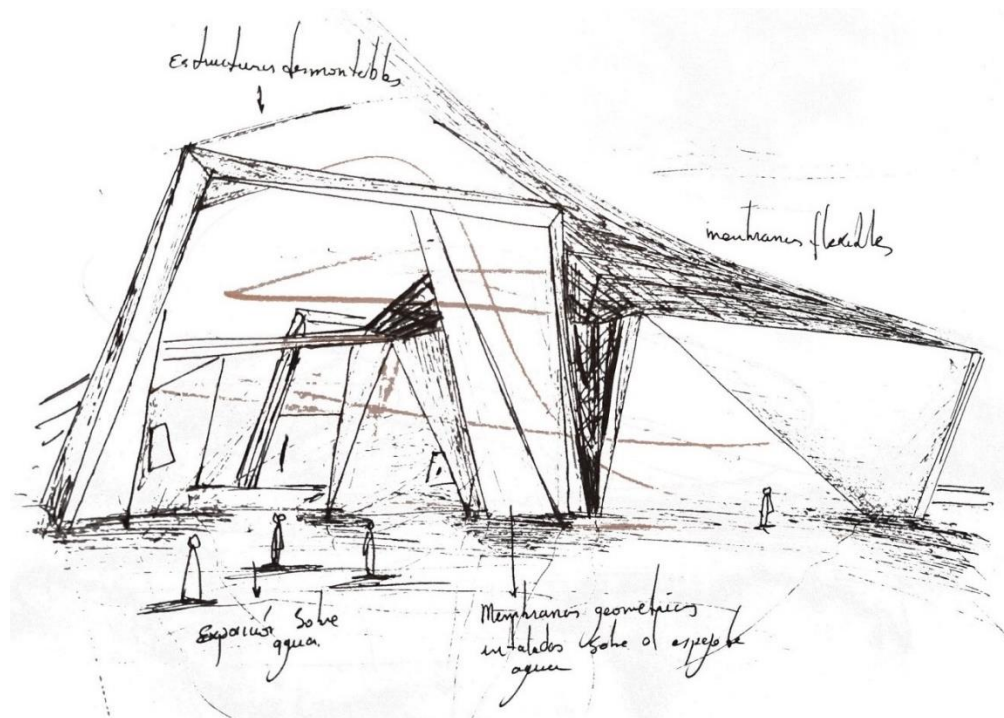 Estructuras desmontables
membranas flexibles
Exposición Sobre
agua.
Membranas geométricas
instaladas sobre el espejo de
agua